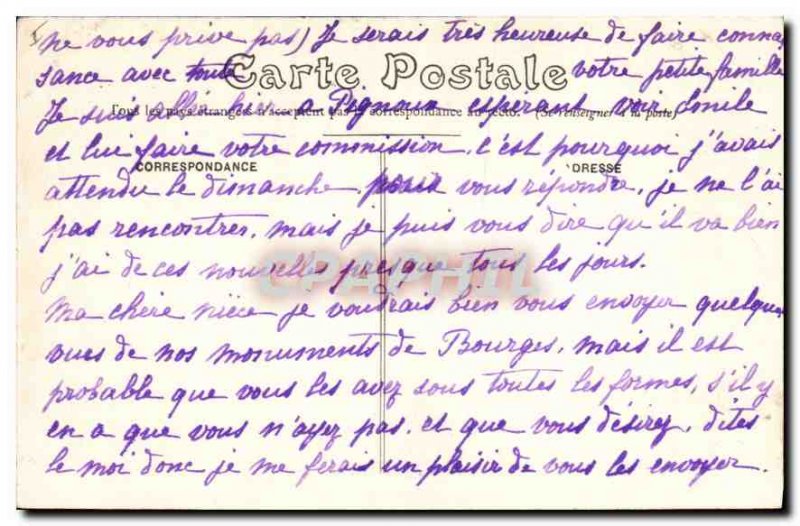 ne vous prive pas) Je serais très heureuse de faire connai
sance avec toute votre petite famille
Carte Postale
Je suis allé hier a Pignoux espérant voir Emile
Tous les pays étrangers n'acceptent pas la correspondance au recto. (Se renseigner à la poste)
et lui faire votre commission. c'est pourquoi j'avais
CORRESPONDANCE ADRESSE
attendu le dimanche pour vous répondre, je ne l'ai
pas rencontrer. mais je puis vous dire qu'il va bien
j'ai de ces nouvelles presque tous les jours.
CPAPHIL
Ma chère nièce je voudrais bien vous envoyer quelque
vues de nos monuments de Bourges, mais il est
probable que vous les avez sous toutes les formes, s'il y
en a que vous n'ayez pas. et que vous désirez, dites
le moi donc je me ferais un plaisir de vous les envoyer.